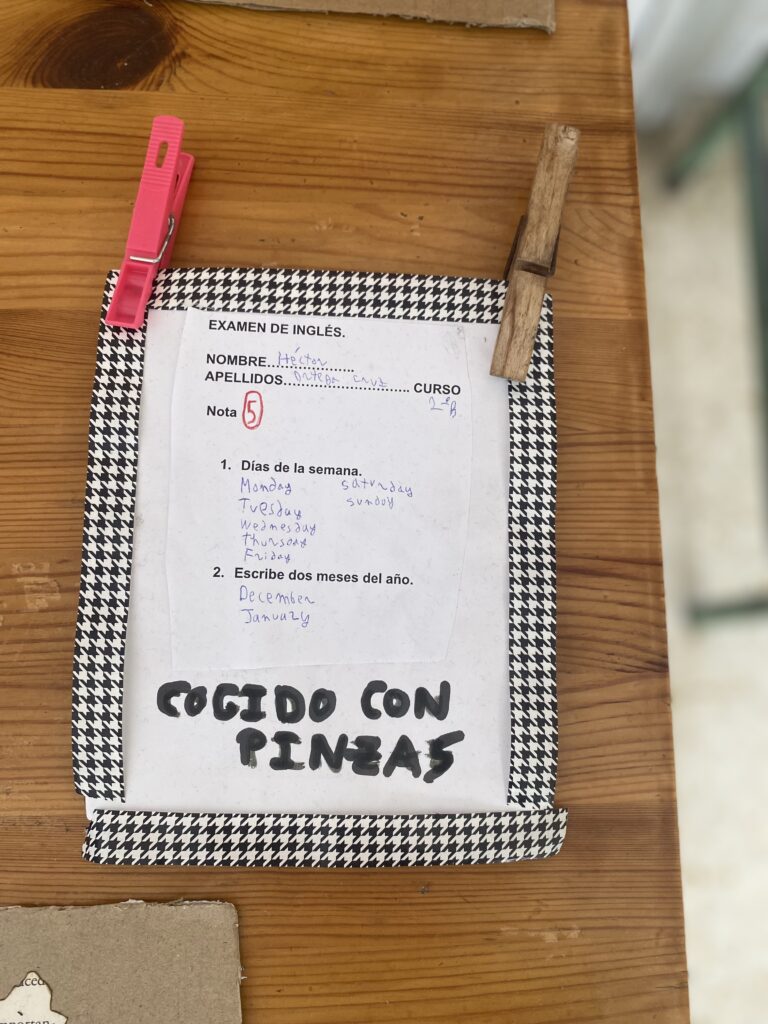 EXAMEN DE INGLÉS.
NOMBRE Héctor
APELLIDOS Ortega Cruz CURSO
2ºB
Nota 5
1. Días de la semana.
Monday saturday
Tuesday sunday
Wednesday
thursday
Friday
2. Escribe dos meses del año.
December
January
COGIDO CON
PINZAS